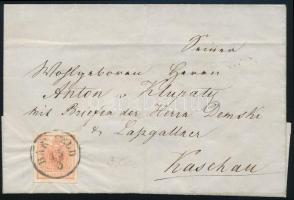 Seiner
Wohlgeboren Herrn
Anton v Klupaty
mit Briefen der Herrn Demski
& Lapgallner
Kaschau
BART FELD